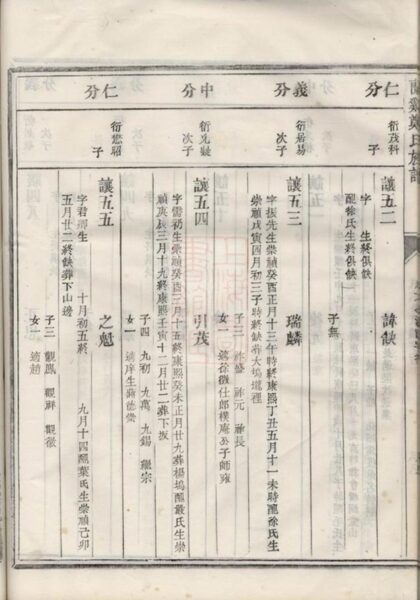 仁分
衍茂科
子
讓五二
諱缺
字　生終俱缺
配徐氏生終俱缺
子無
義分
衍居易
次子
讓五三
瑞麟
字振先生崇禎癸酉正月十三午時終康熙丁丑五月十一未時配徐氏生
崇禎戊寅四月初三子時終缺葬大塢壠裡
子三 祚盛 祚元 祚長
女一 適徐徵仕郎樸庵公子師雍
中分
次子
讓五四
引茂
字雷初生崇禎癸酉三月十五終康熙癸未正月廿九葬楊塢配嚴氏生崇
禎庚辰三月十九終康熙壬寅十二月廿二葬下坂
子四 九初 九萬 九錫 繼宗
女一 適庠生蔣德崇
仁分
衍懋昭
子
讓五五
之魁
字君卿生　十月初五終　九月十四配葉氏生崇禎己卯
五月廿二終缺葬下山邊
子三 觀鳳 觀祥 觀徵
女一 適趙